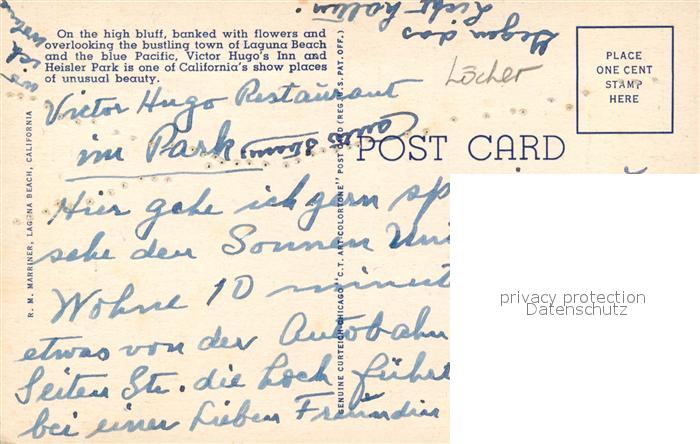 On the high bluff, banked with flowers and
overlooking the bustling town of Laguna Beach
and the blue Pacific, Victor Hugo's Inn and
Heisler Park is one of California's show places
of unusual beauty.
Gegen das
Licht halten!
wo ich wohne
Löcher
PLACE
ONE CENT
STAMP
HERE
Victor Hugo Restaurant
im Park
POST CARD
Hier gehe ich gern sp
sehe den Sonnen Un
Wohne 10 minut
etwas von der Autobahn
Seiten Str. die hoch führt
bei einer Lieben Freundin
R. M. MARRINER, LAGUNA BEACH, CALIFORNIA
GENUINE CURTEICH-CHICAGO "C.T. ART-COLORTONE" POST CARD (REG. U.S. PAT. OFF.)
privacy protection
Datenschutz